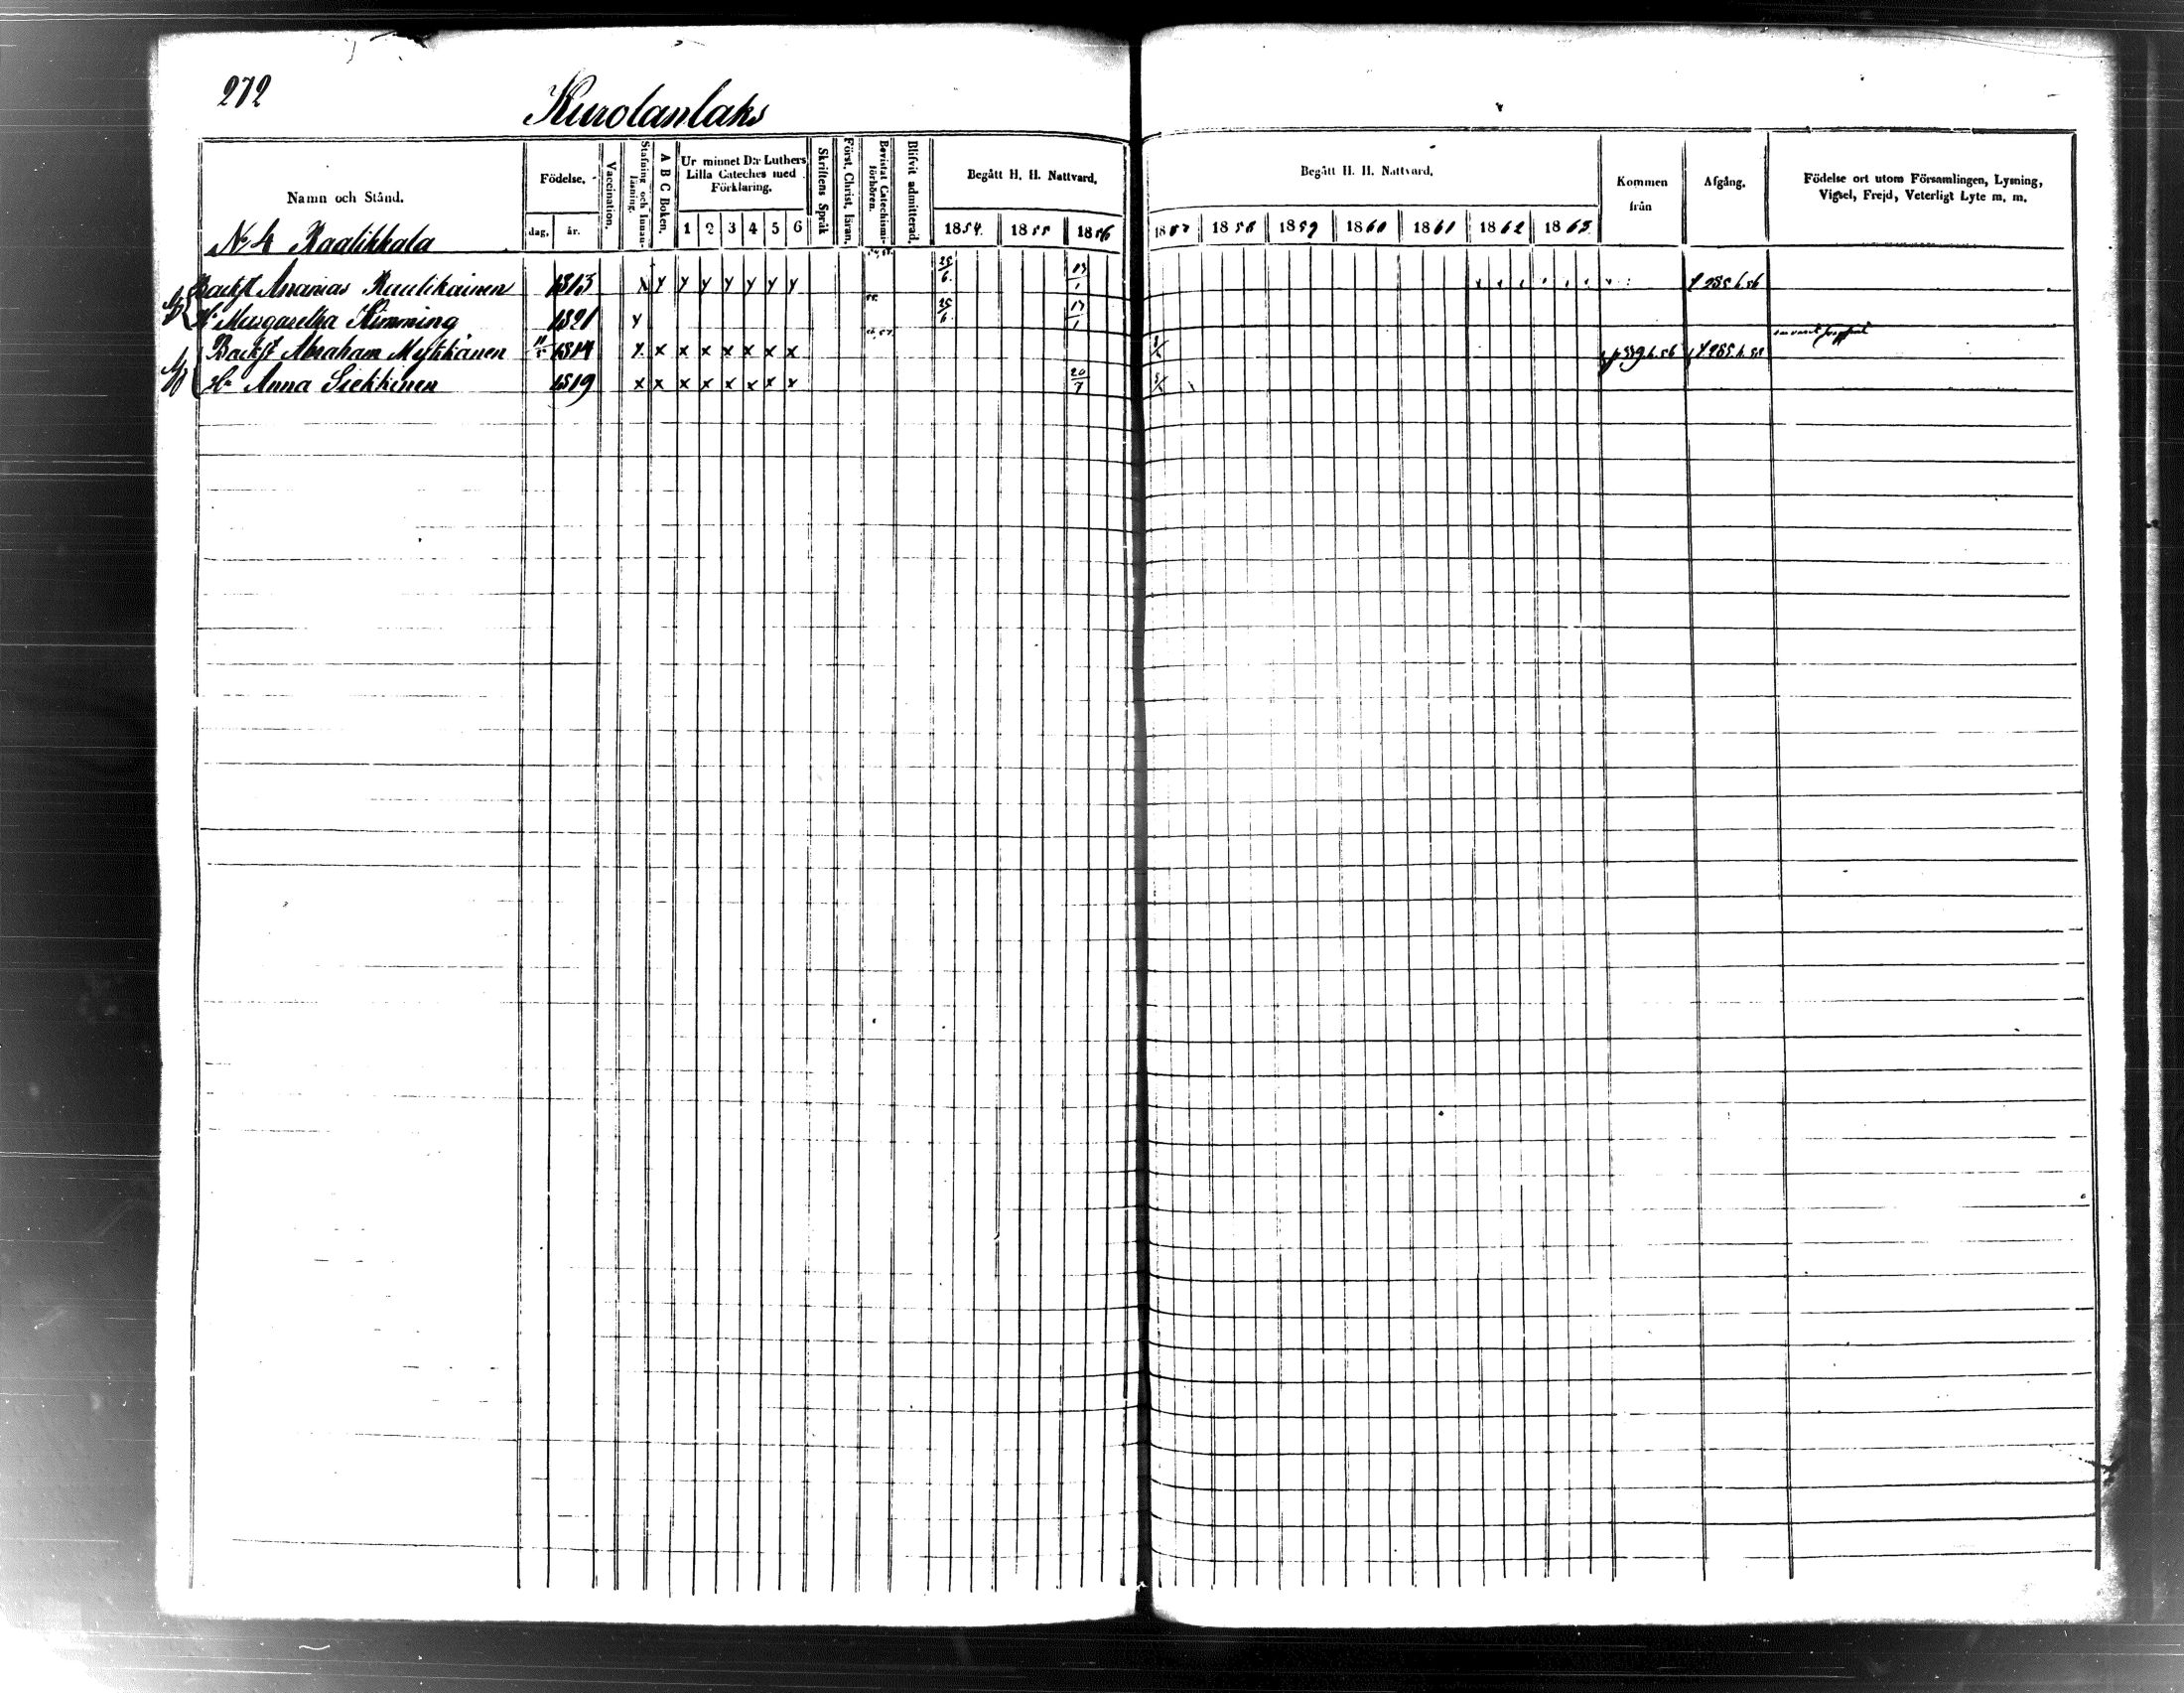 272
Kurolanlaks
Namn och Stånd.
Födelse.
dag. år.
Vaccination.
Stafning och Innanläsning.
A B C Boken.
Ur minnet D:r Luthers Lilla Cateches med Förklaring.
1 2 3 4 5 6
Skriftens Språk
Först. Christ. läran.
Bevistat Catechismiförhören.
Blifvit admitterad.
Begått H. H. Nattvard.
1854. 1855 1856
Begått H. H. Nattvard.
1857 1858 1859 1860 1861 1862 1863
Kommen från
Afgång.
Födelse ort utom Församlingen, Lysning, Vigsel, Frejd, Veterligt Lyte m. m.
No 4 Raalikkala
Backst Ananias Raulikainen 1813 x y y y y y y y 25/6 13/1 285 h. 56
H: Margaretha Kimming 1821 y 25/6 17/1
Backst Abraham Mykkänen 1814 x x x x x x x x 559 h. 56 285 h. 58
H: Anna Siekkinen 1819 x x x x x x x x 20/7